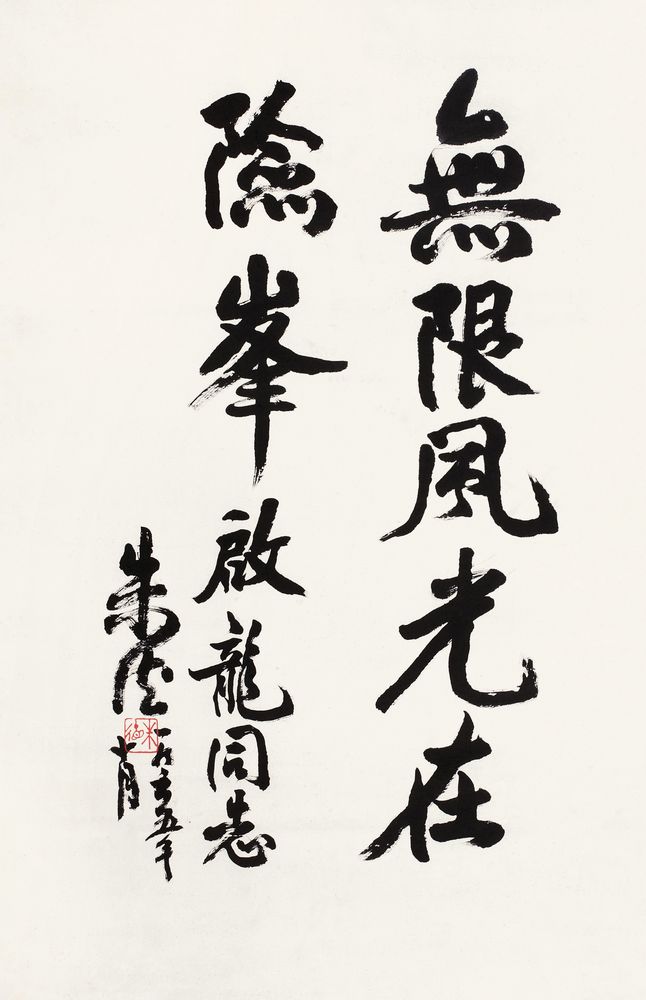 無限風光在
險峯啟龍同志
朱德
一九六五年
朱德